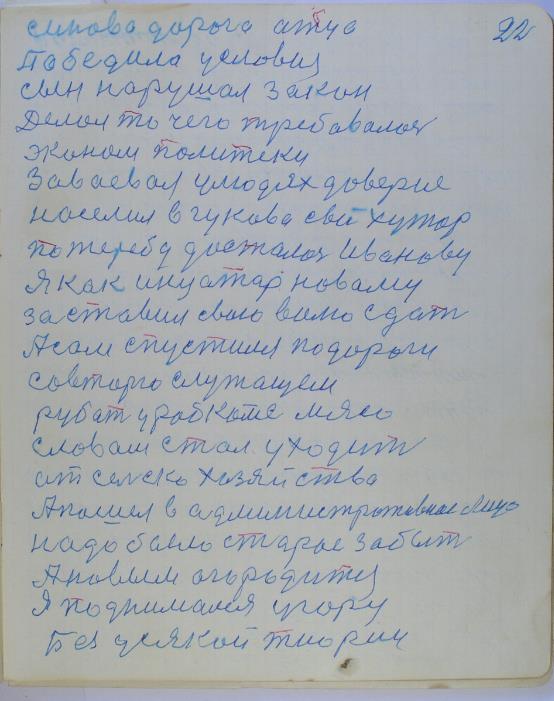 синова дорога атца 22
Пабедила условия
сын нарушал закон
Делол то чего требавалоя
эконом политеки
Заваевал улюдях доверие
населил в чукова свй хутор
потеребд досталоя Иванову
Я как инуатар новаму
заставил свою вилю сдат
Асам спустился подороги
совторго служащем
рубат уработе мясо
словам стал уходит
ат селско хозяйства
Апошел в административное лицо
надо было старое забыт
Ановым огородитя
Я поднималея угору
Без усякой тиории